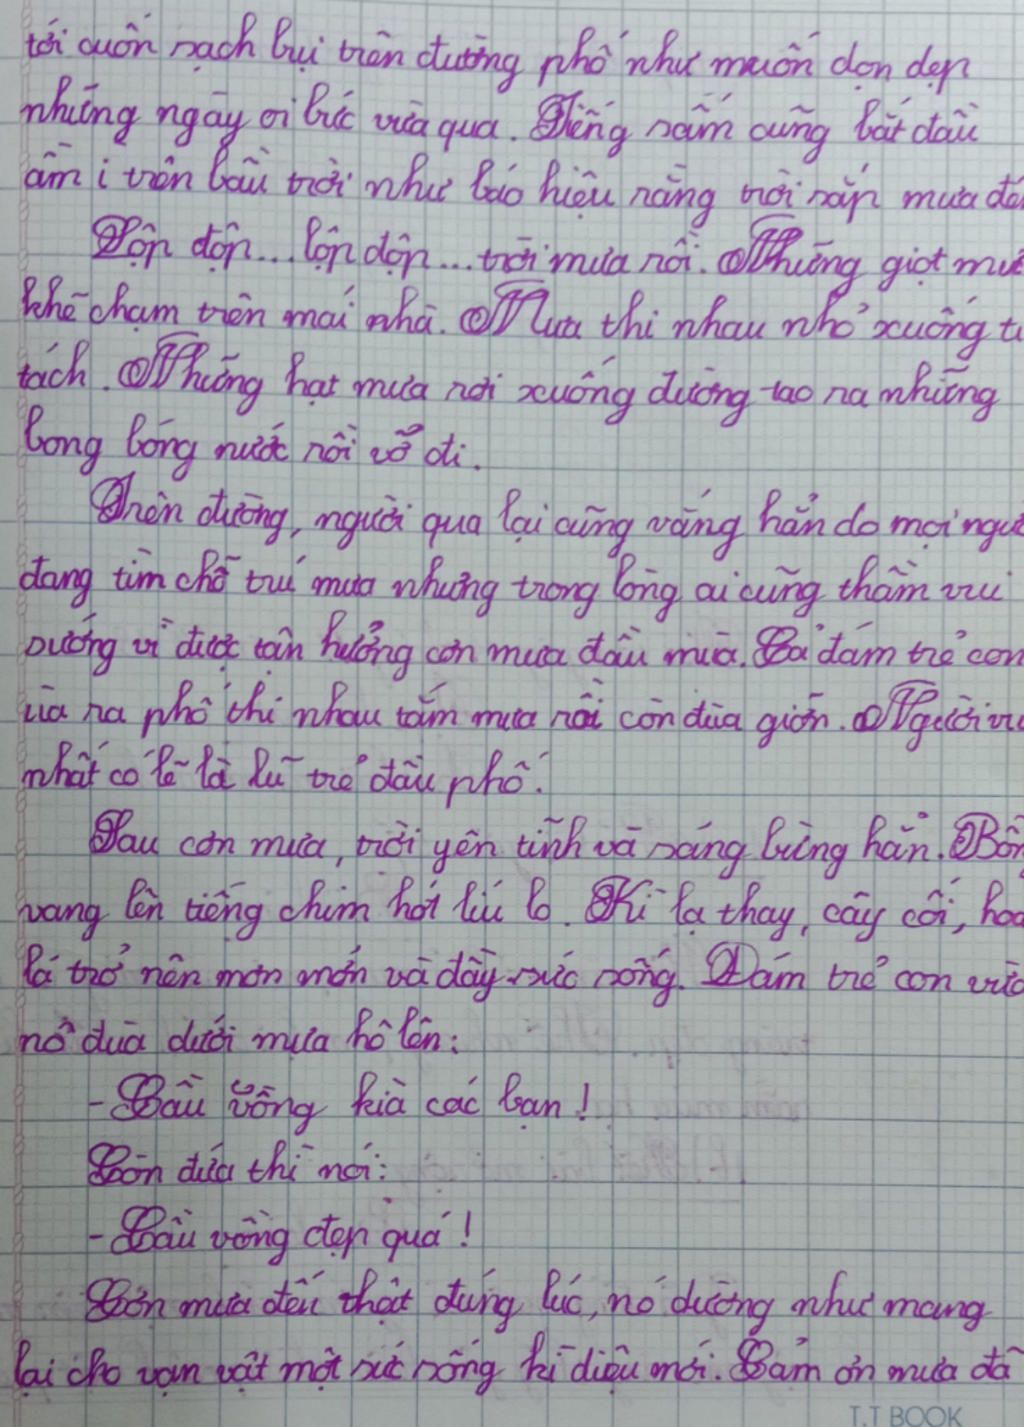 tới cuốn sạch bụi trên đường phố như muốn dọn dẹp
những ngày oi bức vừa qua. Tiếng sấm cũng bắt đầu
ầm ì trên bầu trời như báo hiệu rằng trời sắp mưa
Lộp độp... lộp độp... trời mưa rồi. Những giọt
khẽ chạm trên mái nhà. Mưa thi nhau nhỏ xuống
tách. Những hạt mưa rơi xuống đường tạo ra những
bong bóng nước rồi vỡ đi.
Trên đường, người qua lại cũng vắng hẳn do mọi
đang tìm chỗ trú mưa nhưng trong lòng ai cũng thầm vui
sướng vì được tận hưởng cơn mưa đầu mùa. Cả đám trẻ con
ùa ra phố thi nhau tắm mưa rồi còn đùa giỡn. Người
nhất có lẽ là lũ trẻ đầu phố.
Sau cơn mưa, trời yên tĩnh và sáng bừng hẳn.
vang lên tiếng chim hót líu lo. Kì lạ thay, cây cối, hoa
lá trở nên mơn mởn và đầy sức sống. Đám trẻ con
nô đùa dưới mưa hô lên:
- Cầu vồng kìa các bạn!
Còn đứa thì nói:
- Cầu vồng đẹp quá!
Cơn mưa đến thật đúng lúc, nó dường như mang
lại cho vạn vật một sức sống kì diệu mới. Cảm ơn mưa đã
T.T BOOK